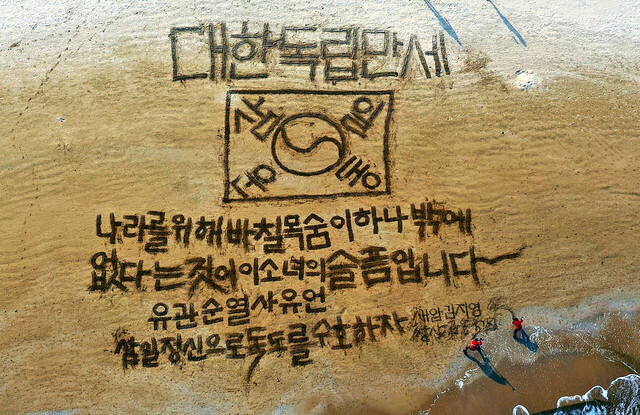 대한독립만세
삼 일
나라를위해바칠목숨이하나밖에
없다는것이이소녀의슬픔입니다
유관순열사유언
삼일정신으로독도를수호하자